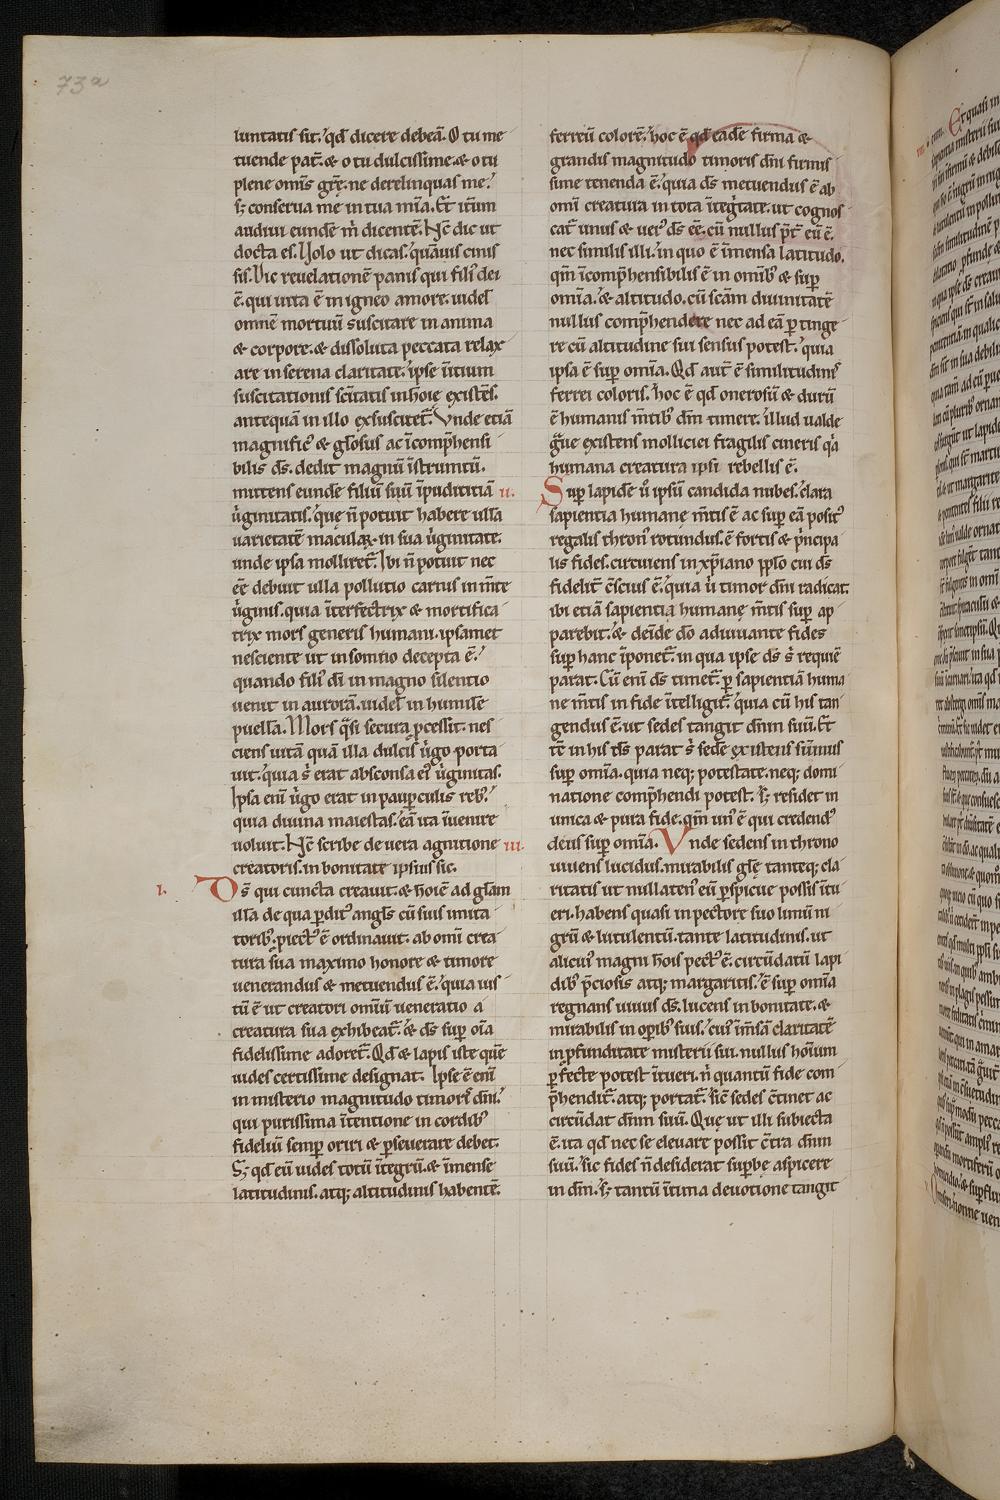 73a
luntatis sit. qđ dicere debeā. O tu me
tuende pat̄. & o tu dulcissime. & o tu
plene om̄is gr̄ę. ne derelinquas me.
s; conserua me in tua mīa. Et it̄um
audiui eundē m̄ dicentē. Nc̄ dic ut
docta es. Uolo ut dicas. quāuis cinis
sis. Dic reuelationē panis qui fili' dei
ē. qui uita ē in igneo amore. uidel̄
omnē mortuū suscitare in anima
& corpore. & dissoluta peccata relax
are in serena claritate. ipse īitium
suscitationis sc̄itatis in hoīe existēs.
antequā in illo exsuscitet̄. Vnde etiā
magnific' & gl̄osus ac īcomp̄hensi
bilis d̄s. dedit magnū īstrumtū.
mittens eundē filiū suū ī pudicitiā
u̇ginitatis. quę n̄ potuit habere ulla
uarietatē macularum in sua u̇ginitate.
unde ipsa molliret̄. Ibi n̄ potuit nec
eē debuit ulla pollutio carnis in m̄te
u̇ginis. quia īterfectrix & mortifica
trix mors generis humani. ipsamet
nesciente ut in somno decepta ē.
quando fili' dī in magno silentio
uenit in aurorā. uidel̄ in humilē
puellā. Mors q̄si secura p̄cessit. nes
ciens uitā quā illa dulcis u̇go porta
uit. quia s̄ erat absconsa ei' u̇ginitas.
Ipsa enī u̇go erat in paup̱culis reb'.
quia diuina maiestas. eā ita īuenire
uoluit. Nc̄ scribe de uera agnitione
creatoris. in bonitate ipsius sic.
I. Ds̄ qui cuncta creauit. & hoīē ad gl̄am
illā de qua p̱dit' angl̄s cū suis imita
torib'. piect' ē ordinauit. ab omī crea
tura sua maximo honore & timore
uenerandus & metuendus ē. quia ius
tū ē ut creatori omīū ueneratio a
creatura sua exhibeat̄. & ds̄ sup̱ oīa
fidelissime adoret̄. Qđ & lapis iste quē
uides certissime designat. Ipse ē enī
in misterio magnitudo timoris dn̄i.
qui purissima ītentione in cordib'
fideliū semp̱ oriri & p̱seuerare debet.
S; qđ eū uides totū ītegrū. & īmense
latitudinis. atq; altitudinis habentē.
ferreū colorē. hoc ē qđ eadē firma &
grandis magnitudo timoris dn̄i firmis
sime tenenda ē. quia ds̄ metuendus ē ab
omī creatura in tota ītegritate. ut cognos
cat̄ unus & uer' ds̄ eē. cū nullus p̄t̄ eū ē.
nec similis illi. in quo ē īmensa latitudo.
qm̄ īcomp̄hensibilis ē in omīb' & sup̱
omīa. & altitudo. cū sc̄am diuinitatē
nullus comp̄hendere nec ad eā p̱tinge
re cū altitudine sui sensus potest. quia
ipsa ē sup̱ omīa. Qđ aut̄ ē similitudinis
ferrei coloris. hoc ē qđ onerosū & durū
ē humanis m̄tib' dn̄m timere. illud ualde
g̊ue existens molliciei fragilis cineris qa
humana creatura ipsi rebellis ē.
II. Sup̱ lapidē u̇ ipsū candida nubes. clara
sapientia humanę m̄tis ē ac sup̱ eā posit'
regalis thron' rotundus. ē fortis & p̄ncipa
lis fides. circuiens in xp̄iano pplo cui ds̄
fidelit̄ c̄scius ē. quia u̇ timor dn̄i radicat.
ibi etiā sapientia humanę m̄tis sup̱ ap
parebit. & deīde dō adiuuante fides
sup̱ hanc īponet̄. in qua ipse ds̄ s̄ requiē
parat. Cū enī ds̄ timet̄. p̱ sapientiā huma
nę m̄tis in fide ītelligit̄. quia cū his tan
gendus ē. ut sedes tangit dn̄m suū. Et
tē in his ds̄ parat s̄ sedē existens sūmus
sup̱ omīa. quia neq; potestate. neq; domi
natione comp̄hendi potest. s; residet in
unica & pura fide. qm̄ un' ē qui credend'
III. deus sup̱ omīa. Vnde sedens in throno
uiuens lucidus. mirabilis gl̄ę tantęq; cla
ritatis ut nullaten' eū p̱spicue possis ītu
eri. habens quasi in pectore suo limū ni
grū & lutulentū. tante latitudinis. ut
alicui' magni hoīs pect' ē. circūdatū lapi
dib' p̄ciosis atq; margaritis. ē sup̱ omīa
regnans uiuus ds̄. lucens in bonitate. &
mirabilis in op̱ib' suis. cui' īm̄sā claritatē
in p̱funditate misterii sui. nullus hoīum
p̱fecte potest ītueri. n̄ quantū fide com
p̄hendit̄. atq; portat̄. sic sedes c̄tinet ac
circūdat dn̄m suū. Quę ut illi subiecta
ē. ita qđ nec se eleuare possit c̄tra dn̄m
suū. sic fides n̄ desiderat sup̱be aspicere
in dm̄. s; tantū ītima deuotione tangit